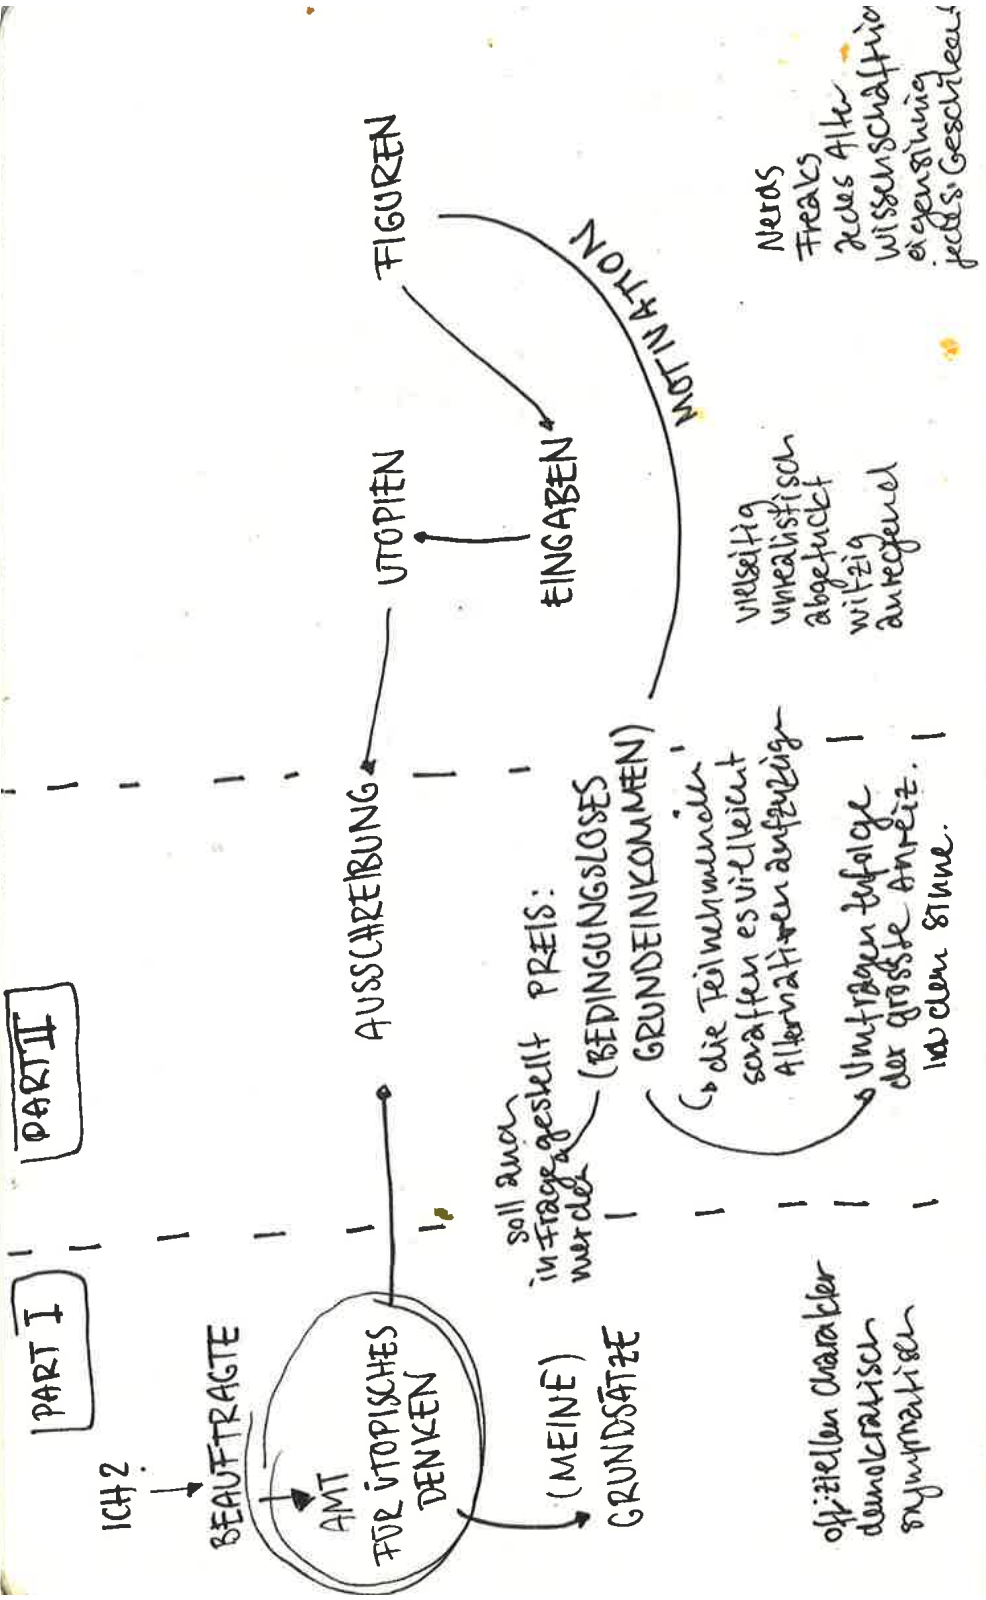 PART I
ICH?
BEAUFTRAGTE
AMT
FÜR UTOPISCHES
DENKEN
(MEINE)
GRUNDSÄTZE
offiziellen Charakter
demokratisch
sympathisch
PART II
AUSSCHREIBUNG
soll auch
in Frage gestellt
werden
PREIS:
(BEDINGUNGSLOSES
GRUNDEINKOMMEN)
die Teilnehmenden
schaffen es vielleicht
Alternativen aufzuzeigen
Umfragen zufolge
der grösste Anreiz.
In dem Sinne.
UTOPIEN
EINGABEN
vielseitig
unrealistisch
abgefuckt
witzig
anregend
FIGUREN
MOTIVATION
Nerds
Freaks
Jedes Alter
Wissenschaftlich
eigensinnig
jedes Geschlecht